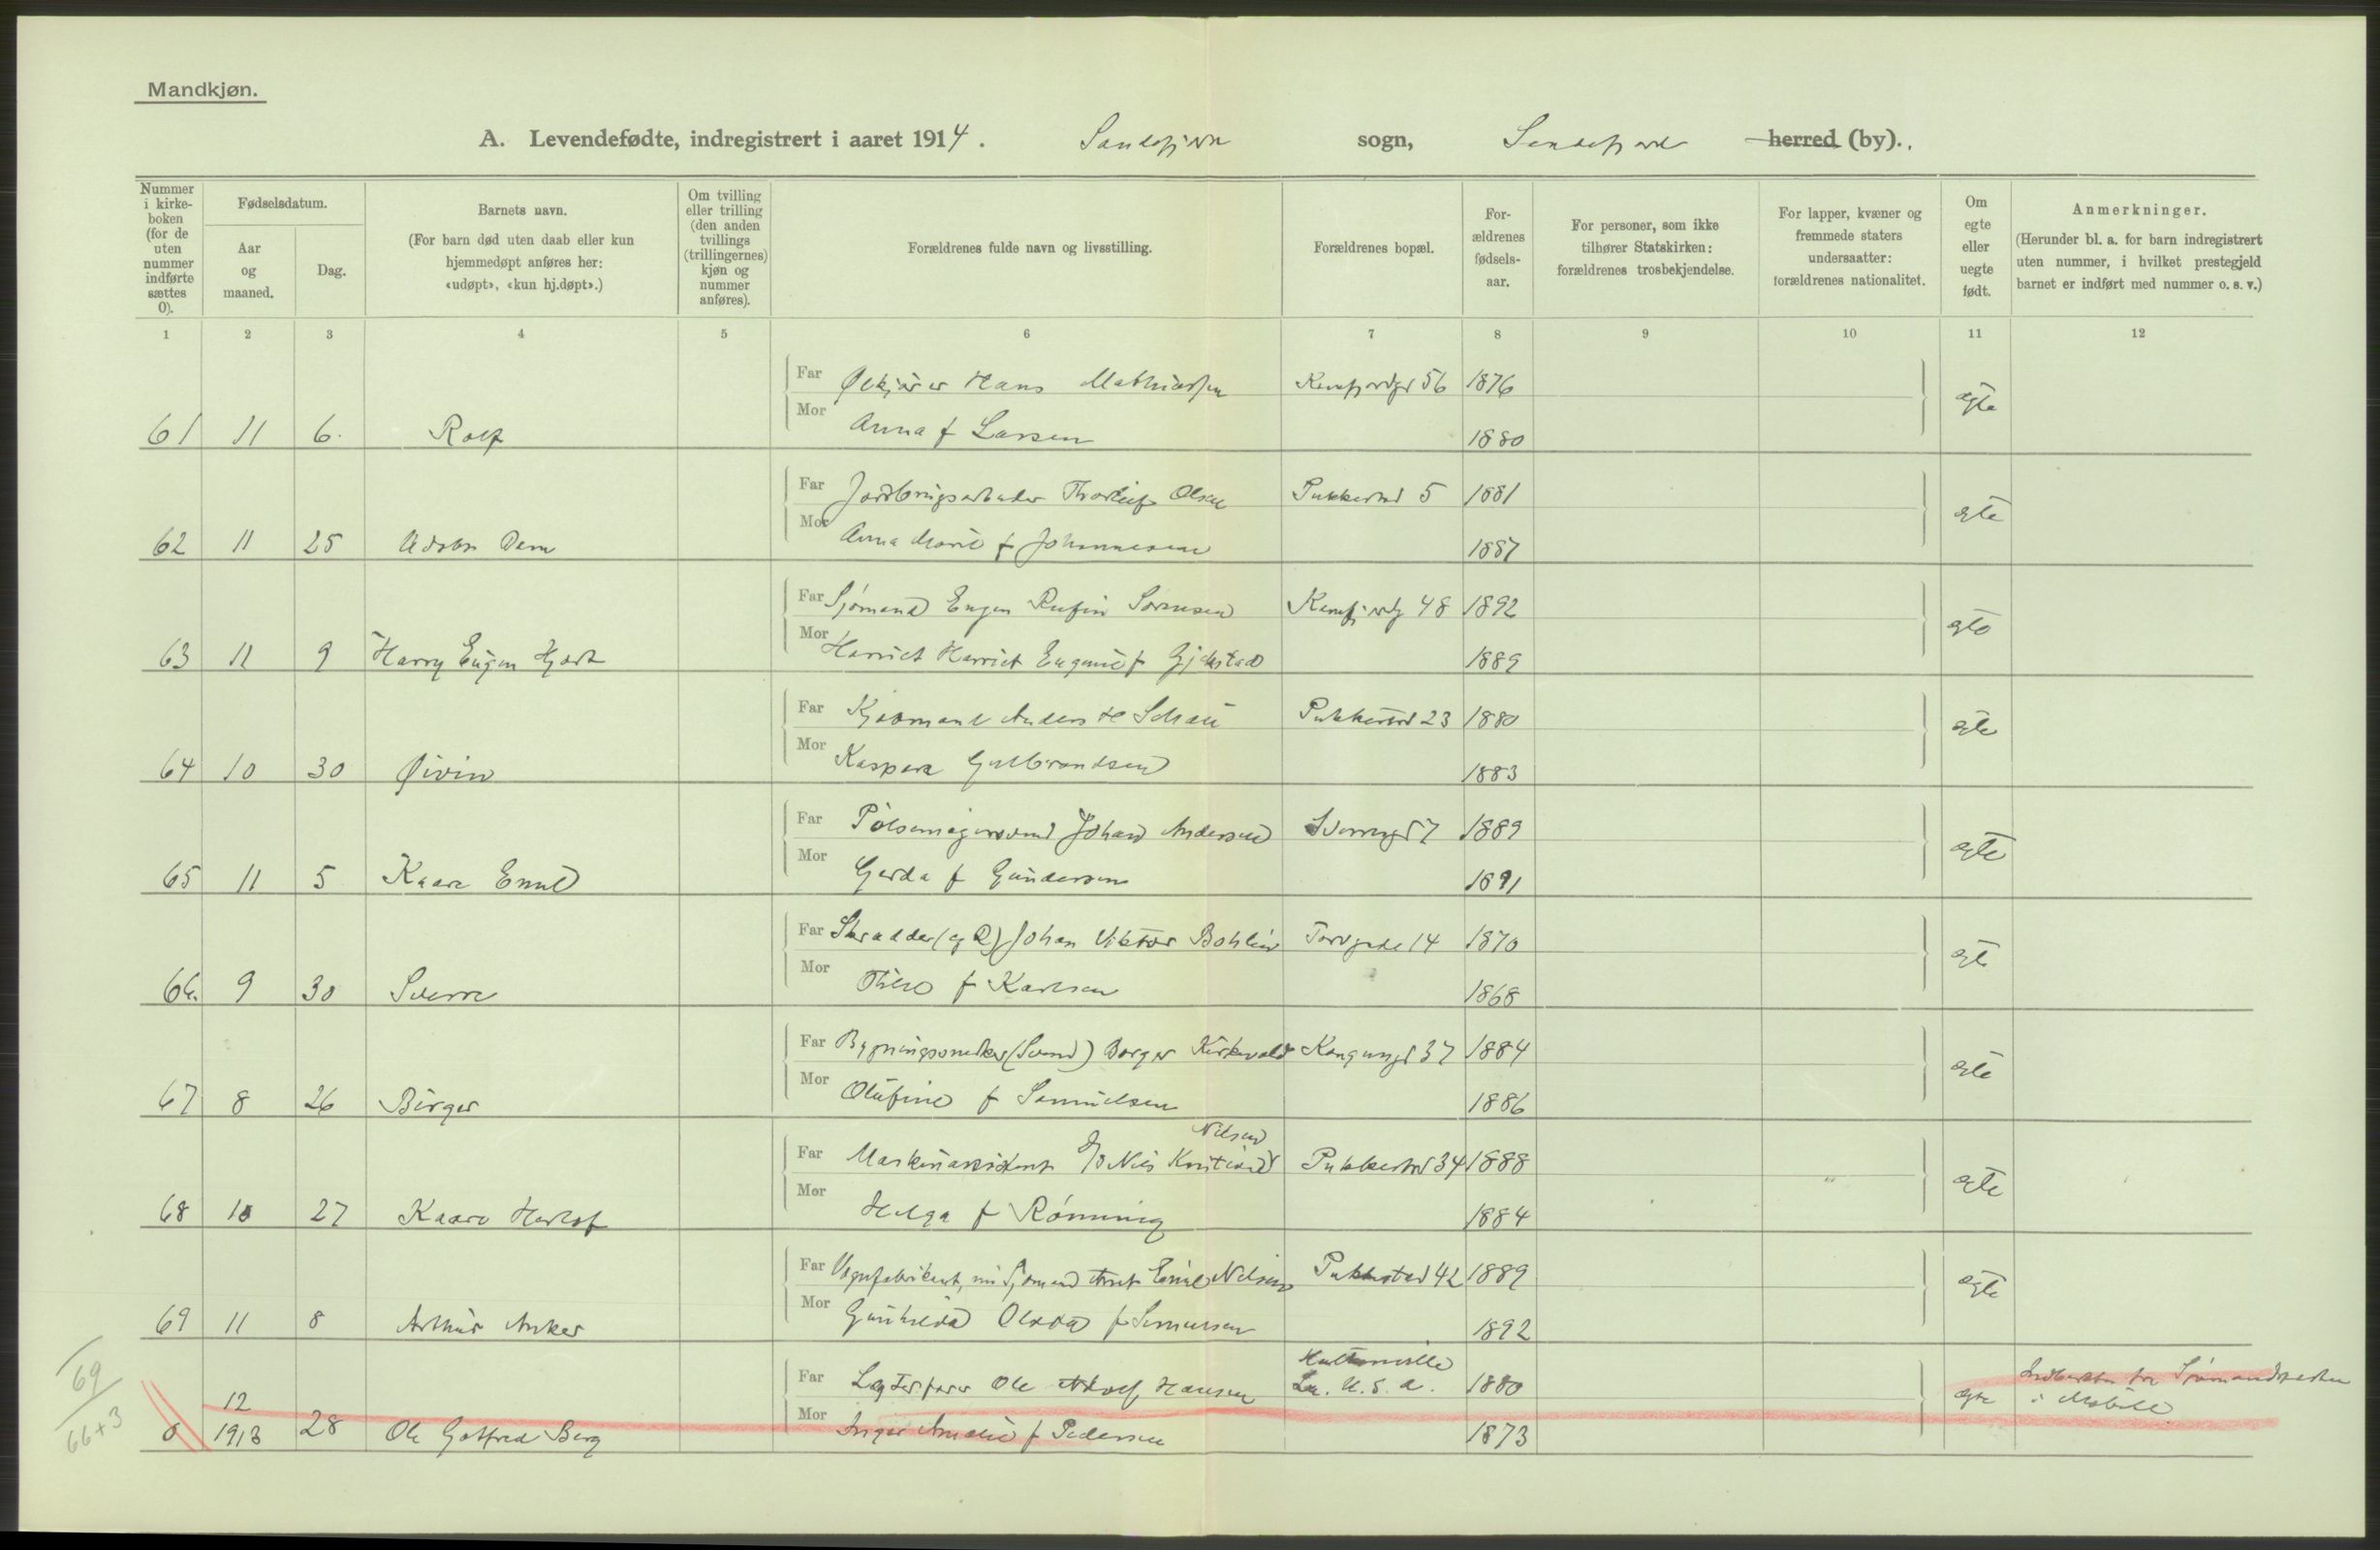 Mandkjøn.
A. Levendefødte, indregistrert i aaret 1914. Sandefjord sogn, Sandefjord herred (by).
Nummer i kirke-boken (for de uten nummer indførte sættes 0).
Fødselsdatum.
Aar og maaned.
Dag.
Barnets navn.
(For barn død uten daab eller kun hjemmedøpt anføres her: «udøpt», «kun hj.døpt».)
Om tvilling eller trilling (den anden tvillings (trillingernes) kjøn og nummer anføres).
Forældrenes fulde navn og livsstilling.
Forældrenes bopæl.
For-ældrenes fødsels-aar.
For personer, som ikke tilhører Statskirken: forældrenes trosbekjendelse.
For lapper, kvæner og fremmede staters undersaatter: forældrenes nationalitet.
Om egte eller uegte født.
Anmerkninger.
(Herunder bl. a. for barn indregistrert uten nummer, i hvilket prestegjeld barnet er indført med nummer o. s. v.)
1 2 3 4 5 6 7 8 9 10 11 12
Far Hans Mathiassen 56 1876
61 11 6. Rolf Mor Anna f Larsen 1880 egte
Far Thorleif Olsen Pukkestad 5 1881
62 11 25 Mor Anna Marie f Johannesen 1887 egte
Far Sjømand Eugen Rufin Sørensen 48 1892
63 11 9 Harry Eugen Mor Harriet Harriet Eugenie f 1889 egte
Far Anders H Pukkestad 23 1880
64 10 30 Øivin Mor Kaspara Gulbrandsen 1883 egte
Far Johan Andersen 7 1889
65 11 5 Kaare Emil Mor Gerda f Gundersen 1891 egte
Far Skrædder Johan Viktor Bohlin Torvgade 14 1870
66. 9 30 Sverre Mor f Karlsen 1868 egte
Far Bygningssnedker (Svend) Borger Kirkevold Kongensgt 37 1884
67 8 26 Birger Mor Olufine f Samuelsen 1886 egte
Nilsen
Far Maskinassistent Nils Kristian Pukkestad 34 1888
68 10 27 Kaare Mor Helga f Rønning 1884 egte
Far Vognfabrikant, nu Sjømand Emil Nilsen Pukkestad 42 1889
69 11 8 Arthur Anker Mor Gunhilda f 1892 egte
69
66+3
Far Ole Adolf Hansen U.S.A. 1880
0 12 1913 28 Ole Gotfred Berg Mor Inga Amalie f Pedersen 1873 egte
Sjømandspresten i Mobile